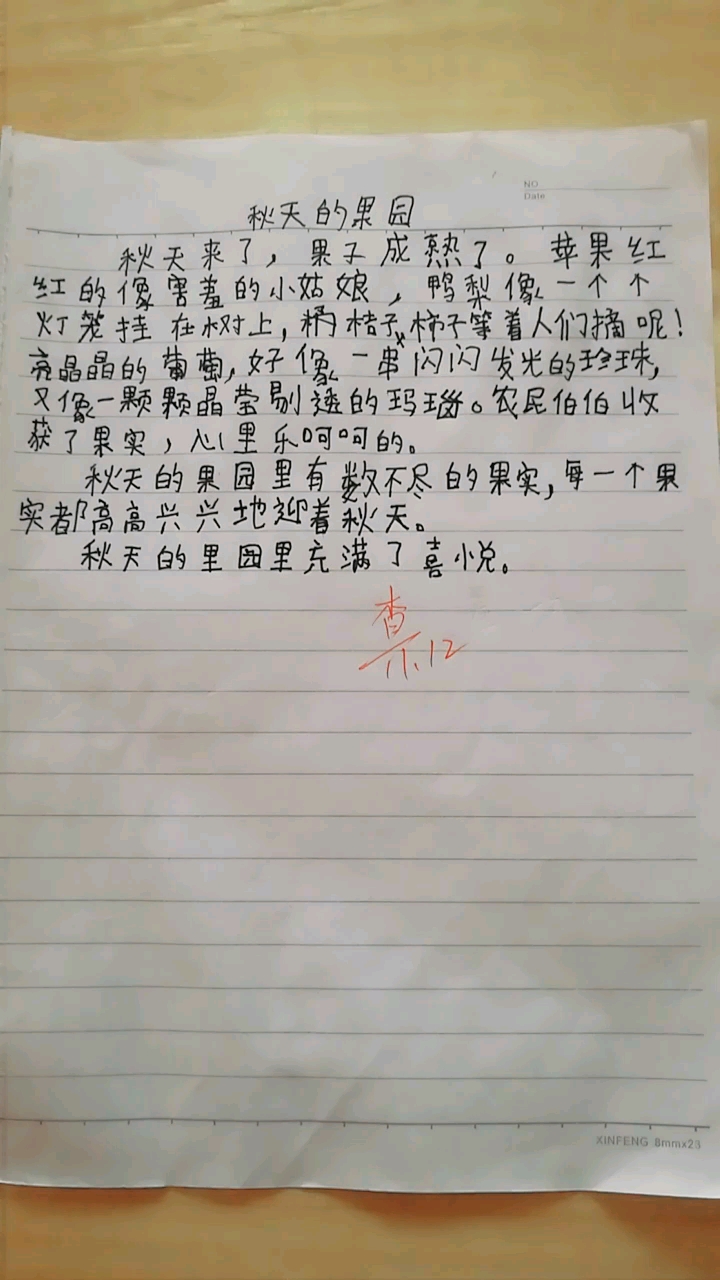 NO.
Date
秋天的果园
秋天来了，果子成熟了。苹果红
红的像害羞的小姑娘，鸭梨像一个个
灯笼挂在树上，桔子、柿子等着人们摘呢！
亮晶晶的葡萄，好像一串闪闪发光的珍珠，
又像一颗颗晶莹剔透的玛瑙。农民伯伯收
获了果实，心里乐呵呵的。
秋天的果园里有数不尽的果实，每一个果
实都高高兴兴地迎着秋天。
秋天的里园里充满了喜悦。
查
11.12
XINFENG 8mmx23